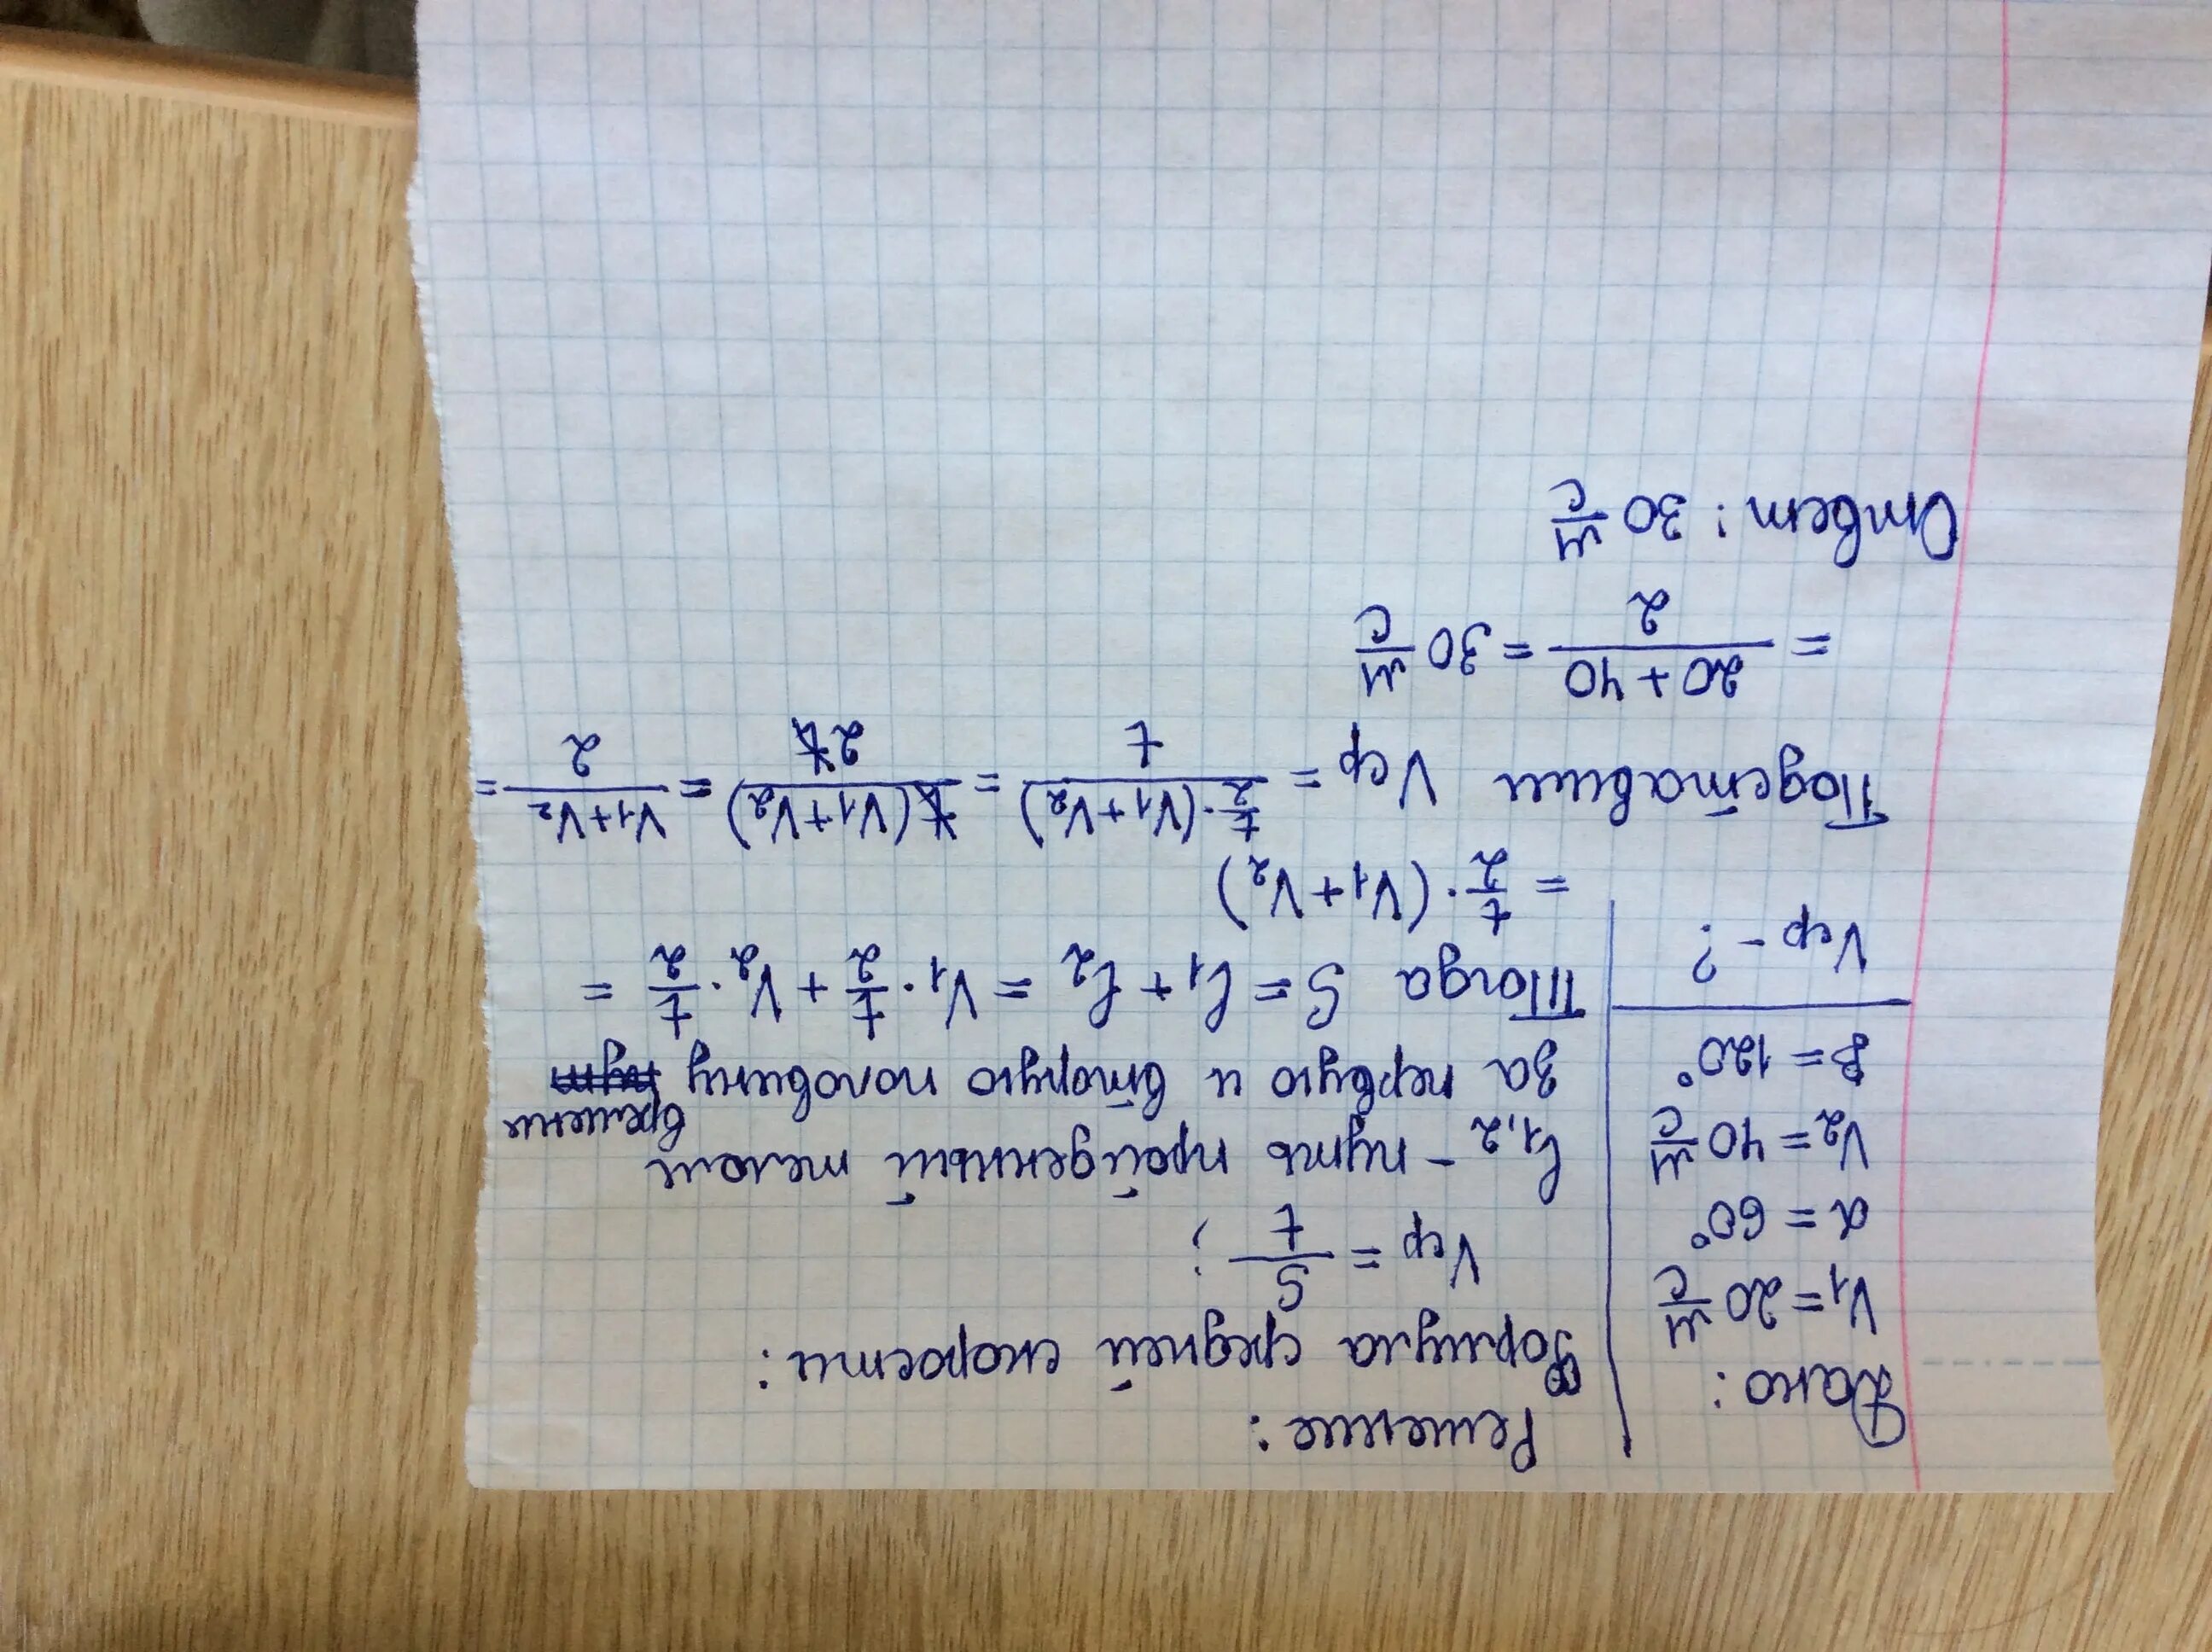 Дано:
V₁ = 20 м/с
α = 60°
V₂ = 40 м/с
β = 120°
Vср - ?
Решение:
Формула средней скорости:
Vср = S/t ;
l₁,₂ - путь пройденный телом
за первую и вторую половину времени
Тогда S = l₁ + l₂ = V₁ · t/2 + V₂ · t/2 =
= t/2 · (V₁ + V₂)
Подставим Vср = (t/2 · (V₁ + V₂))/t = t(V₁ + V₂)/2t = (V₁ + V₂)/2 =
= (20 + 40)/2 = 30 м/с
Ответ: 30 м/с